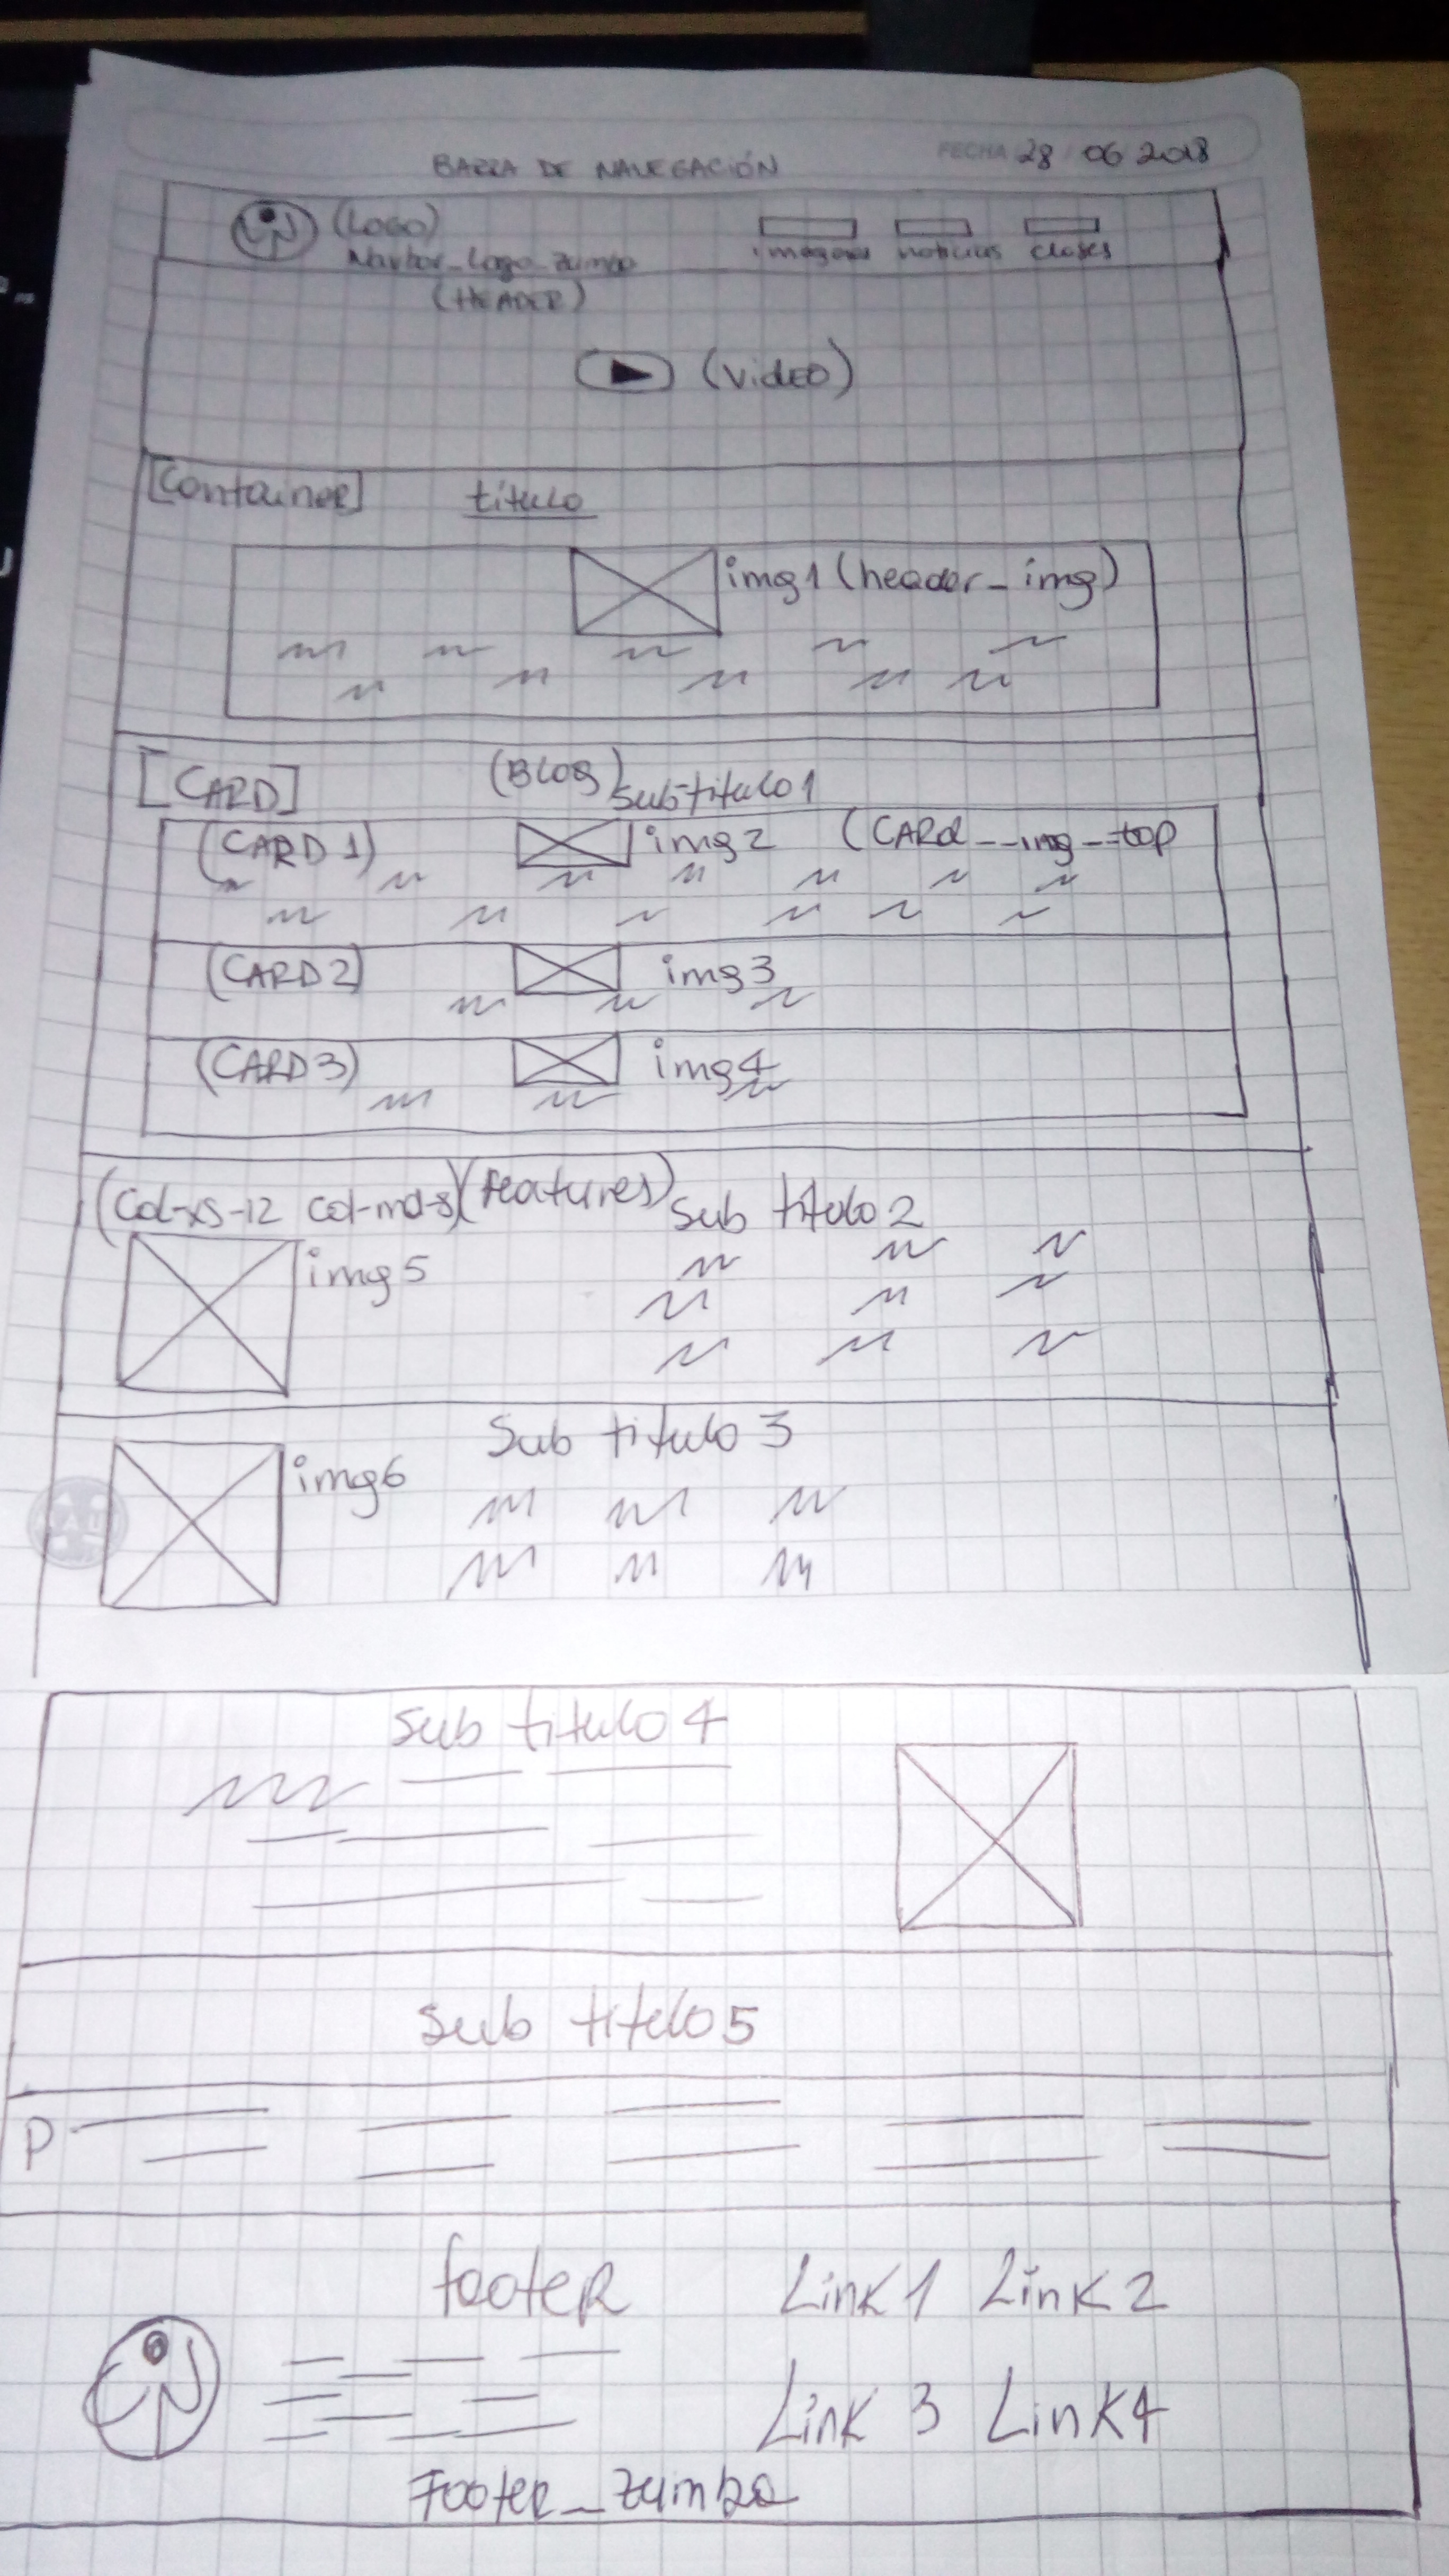 BARRA DE NAVEGACIÓN
FECHA 28 06 2018
(LOGO)
Navbar_Logo_zumba
imagenes noticias clases
(HEADER)
(VIDEO)
[Container] título
img1 (header_img)
[CARD] (BLOG) Subtitulo1
(CARD 1) img2 (CARd__img__top
(CARD2) img3
(CARD3) img4
(Col-xs-12 col-md-8) (features) Sub titulo 2
img5
Sub titulo 3
img6
Sub titulo 4
Sub titulo 5
P
footer Link 1 Link 2
Link 3 Link 4
Footer_zumba